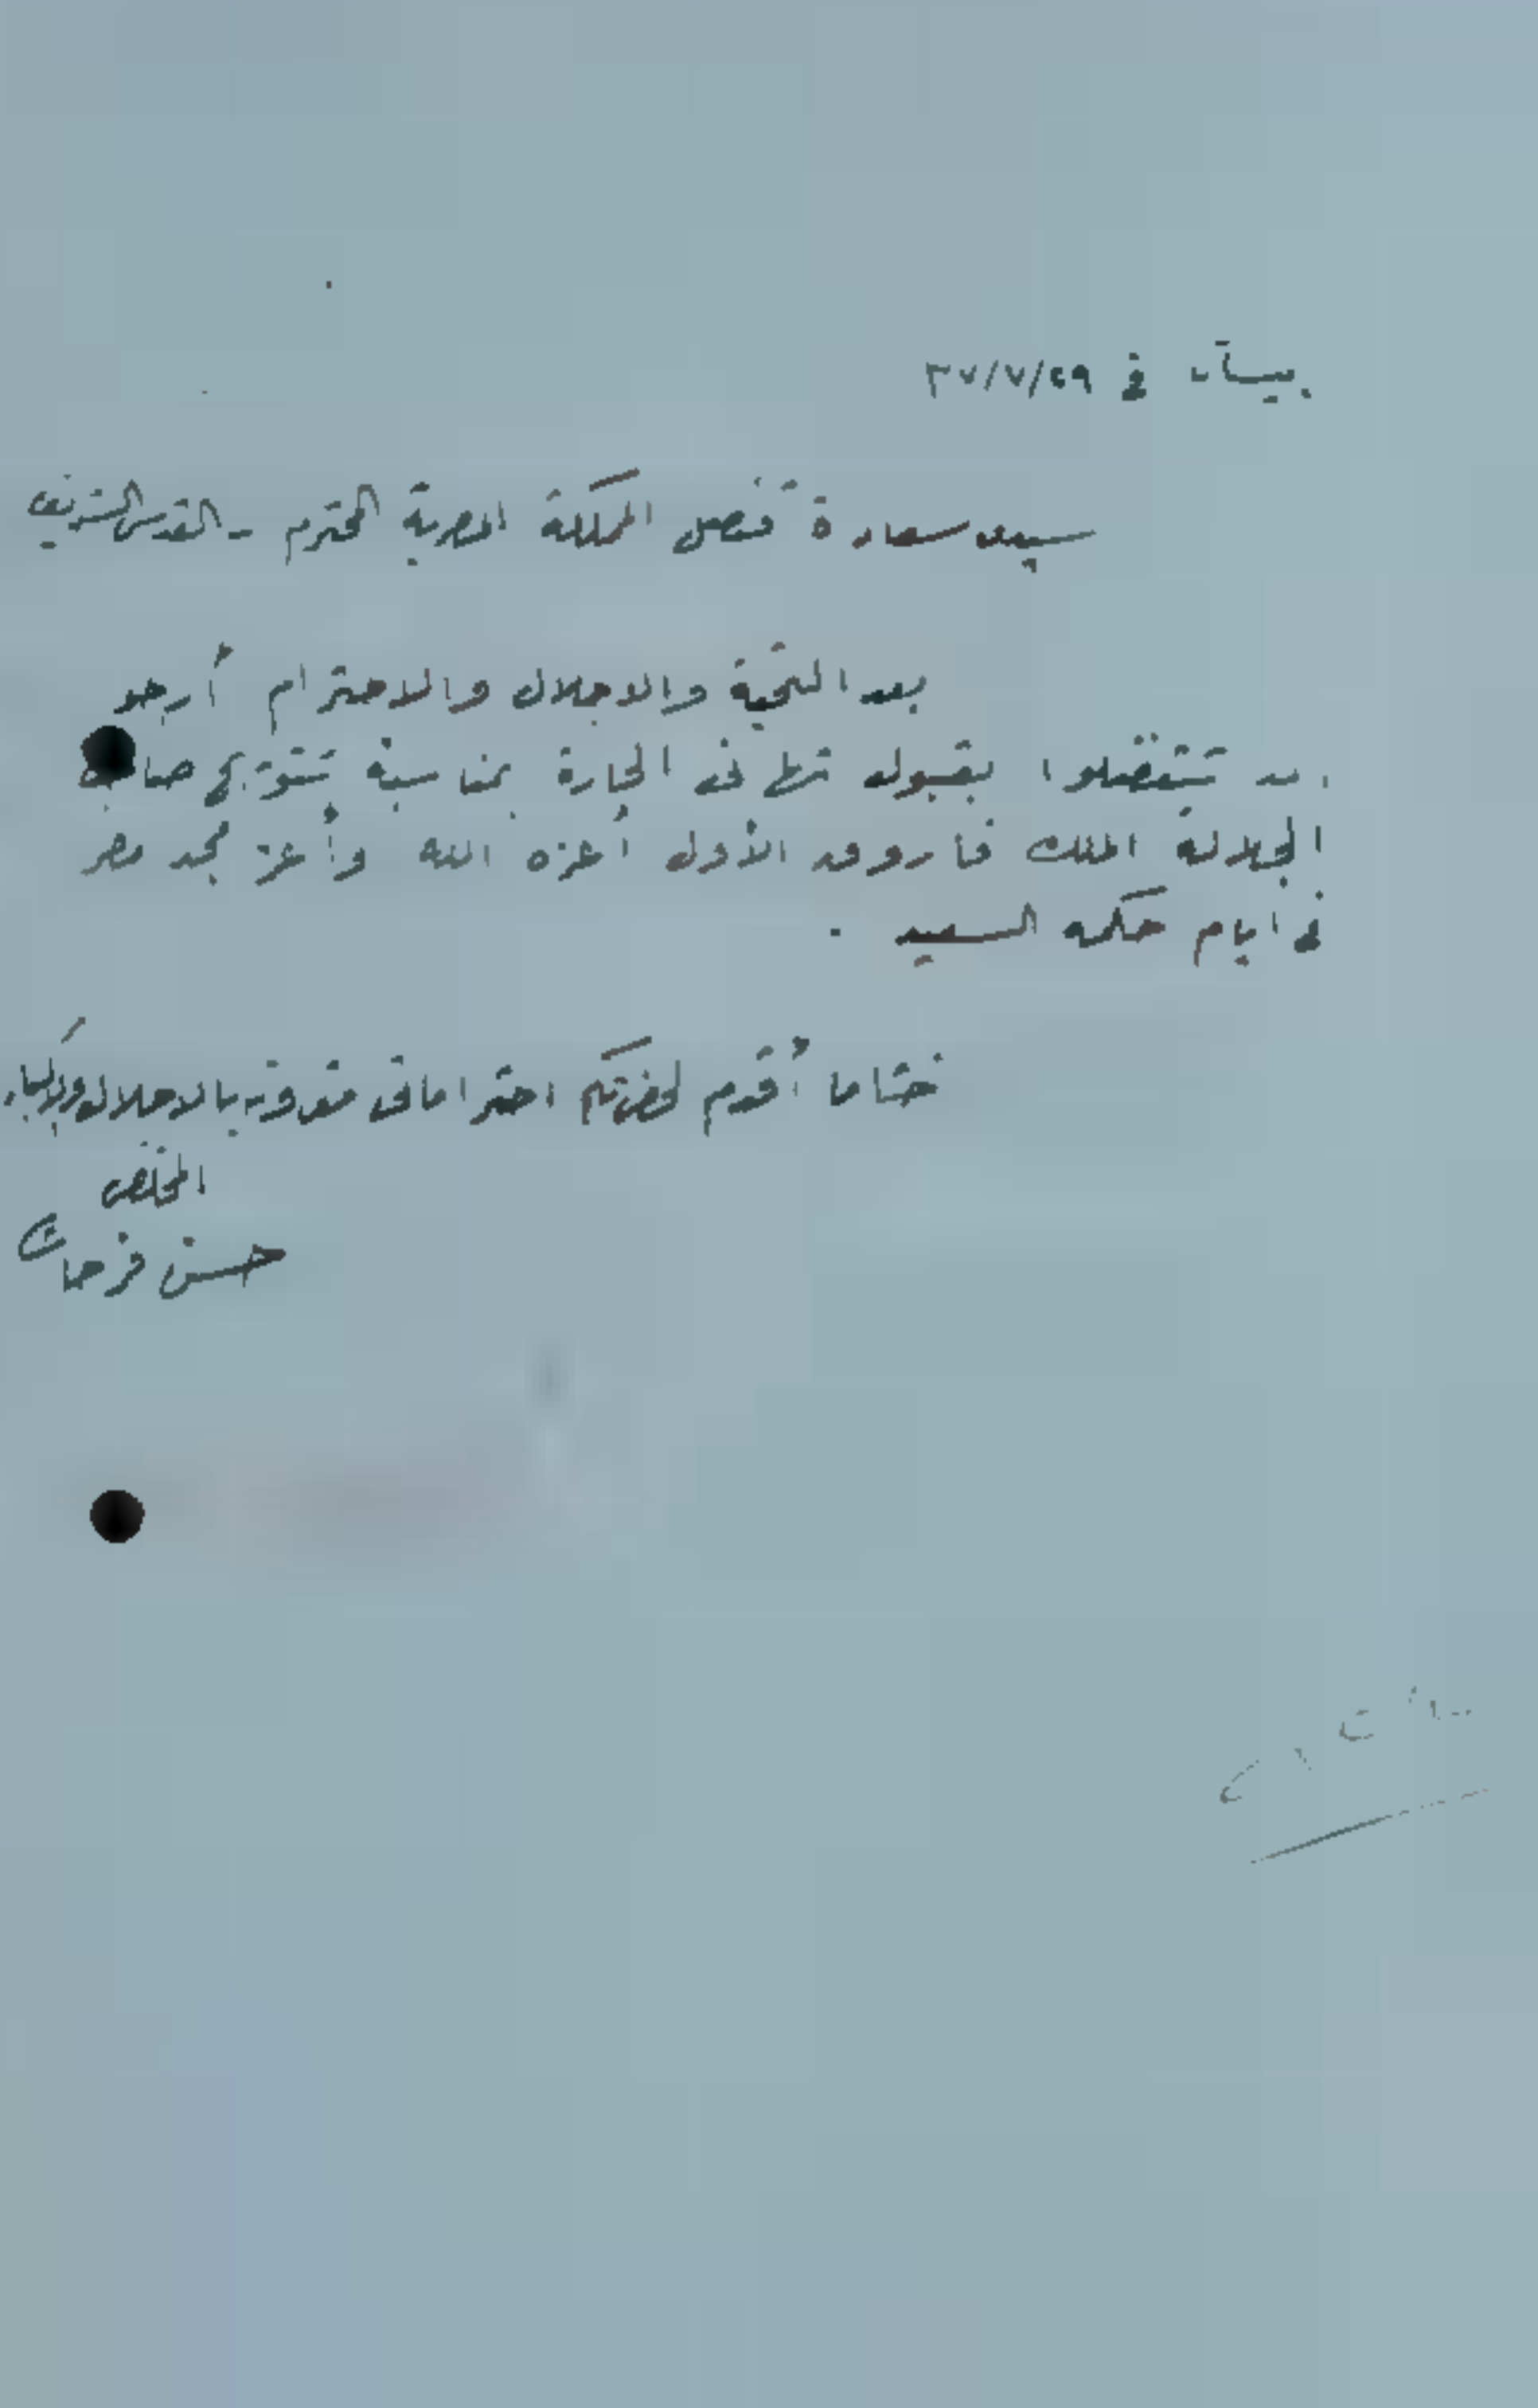 بيسان في ٢٩/٧/٣٧
سيدي سعادة قنصل المملكة المصرية المحترم - القدس الشريف
بعد التحية والاجلال والاحترام أرجو
ان تتفضلوا بقبول في الحارة بمناسبة تتويج صاحب
الجلالة الملك فاروق الأول أعزه الله وأعز مجد مصر
في ايام حكمه السعيد .
ختاما أقدم لحضرتكم احتراماتي مقرونة بالاجلال
المخلص
حسن فرحات